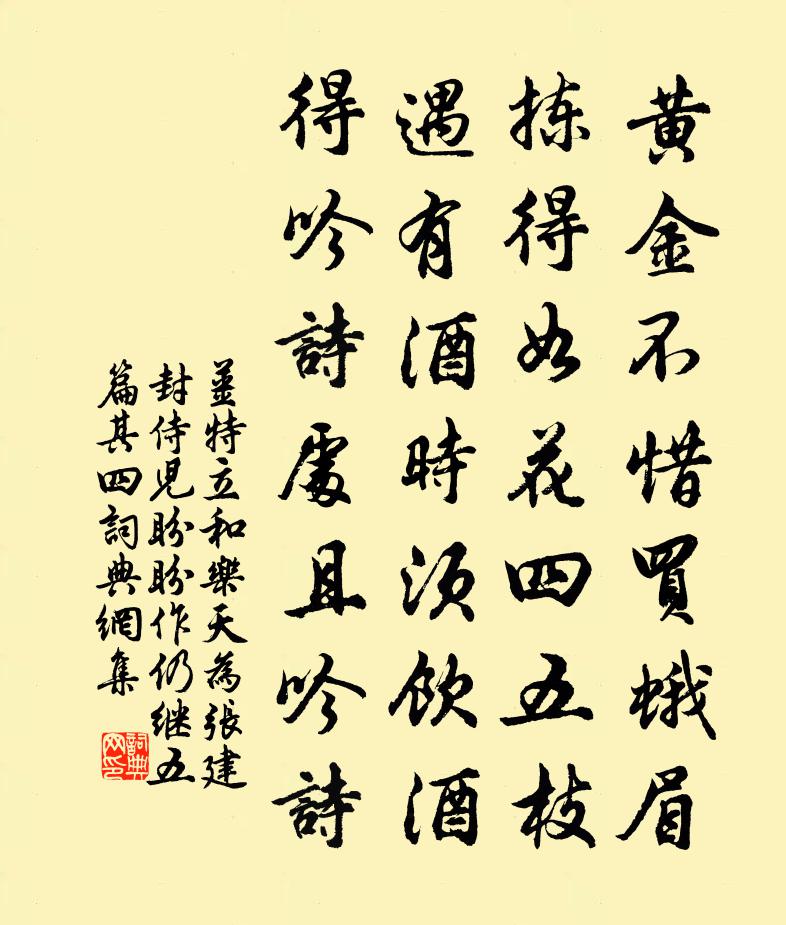 黄金不惜買蛾眉
拣得如花四五枝
遇有酒時須飲酒
得吟詩處且吟詩
姜特立和樂天為張建
封侍児盼盼作仍继五
篇其四詞典網集
詞典网印